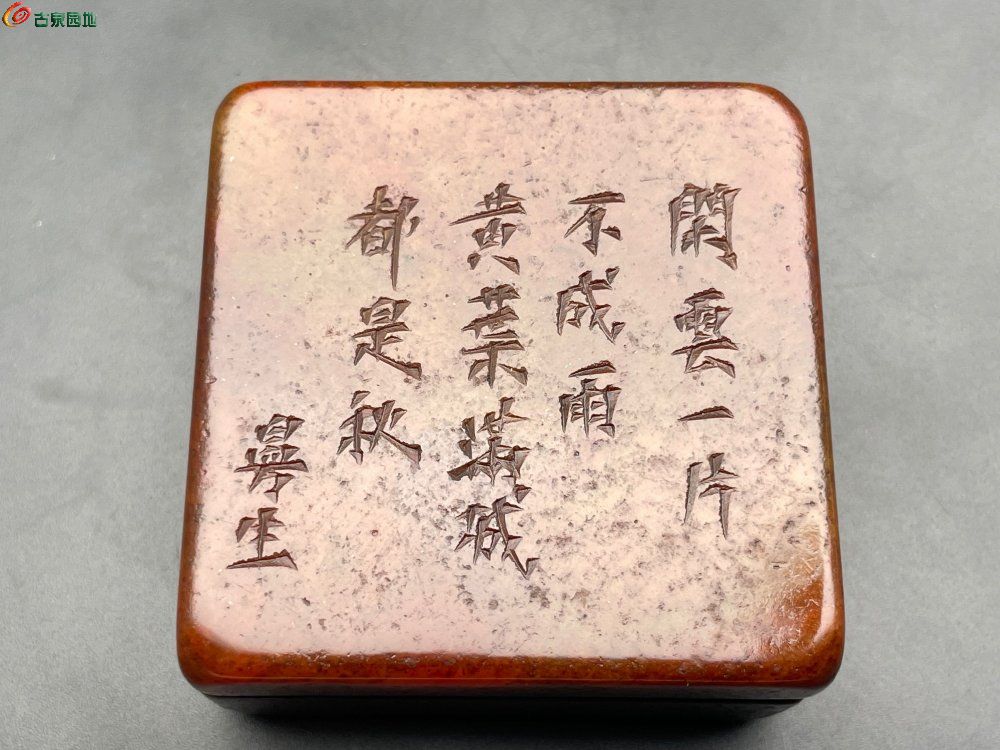 古泉园地
閒雲一片
不成雨
黃葉滿城
都是秋
生